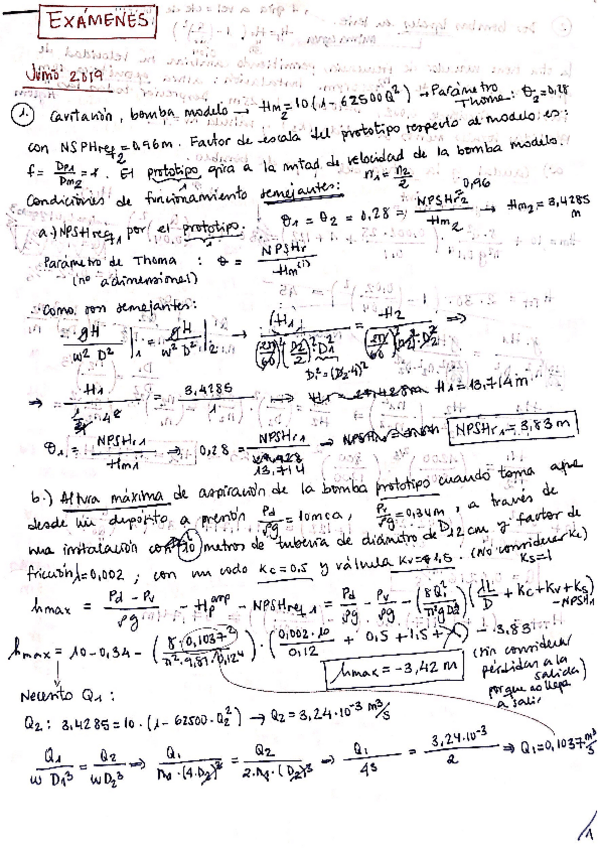 EXÁMENES
Junio 2019
1. Cavitación, bomba modelo → Hm2 = 10(1-62500Q²) → Parámetro Thoma: θ2=0,28
con NSPHreq2 = 0,96m. Factor de escala del prototipo respecto al modelo es:
f = Dp1/Dm2 = 4. El prototipo gira a la mitad de velocidad de la bomba modelo. n1 = n2/2
Condiciones de funcionamiento semejantes:
θ1 = θ2 = 0,28 = NPSHr2/Hm2 → Hm2 = 3,4285 m
0,96
a.) NPSHreq1 por el prototipo:
Parámetro de Thoma : θ = NPSHr/Hm
(nº adimensional)
Como son semejantes:
gH/ω²D² |1 = gH/ω²D² |2 →
D1² = (D2·4)²
⇒ = 3,4285/1 ⇒ H1 = 13,714 m
θ1 = NPSHr1/Hm1 ⇒ 0,28 = NPSHr1/13,714 → NPSHr1 = 3,83 m
b.) Altura máxima de aspiración de la bomba prototipo cuando toma agua
desde un depósito a presión Pd/ρg = 10mca, Pv/ρg = 0,34m, a través de
una instalación con 10 metros de tubería de diámetro de D 12 cm y factor de
fricción f=0,002, con un codo Kc=0.5 y válvula Kv=1,5. (No considerar Ks)
Ks=1
hmax = Pd - Pv/ρg - Hp asp - NPSHreq1 = Pd/ρg - Pv/ρg - (8Q1²/π²gD4)(fL/D + Kc+Kv+Ks) - NPSH1
hmax = 10-0,34 - (8·0,1037²/π²·9,81·0,12⁴)·(0,002·10/0,12 + 0,5+1,5+1) - 3,83
(sin considerar
pérdidas a la
salida)
porque no llega
a salir
hmax = -3,42 m
Necesito Q1:
Q2: 3,4285 = 10·(1-62500·Q2²) → Q2 = 3,24·10⁻³ m³/s
Q1/ωD1³ = Q2/ωD2³ ⇒ Q1/n1·(4·D2)³ = Q2/2·n1·(D2)³ ⇒ Q1/4³ = 3,24·10⁻³/2 ⇒ Q1=0,1037 m³/s
1